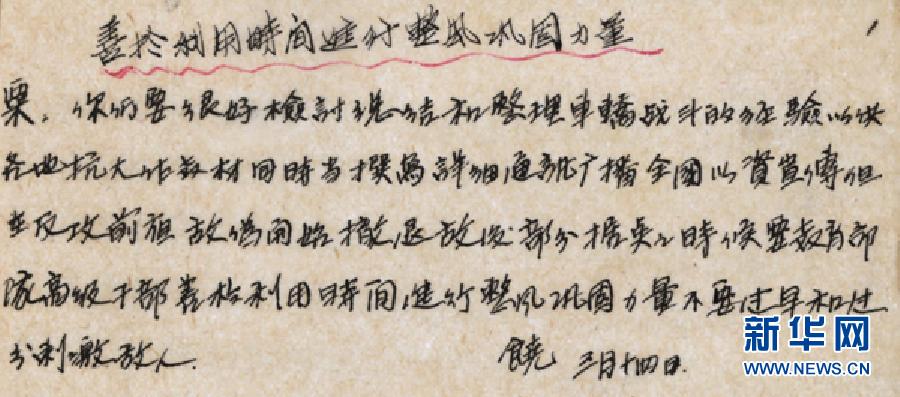 善於利用時間進行整风巩固力量
粟，你们要很好檢討总结和整理車轎战斗的经驗以供
各地抗大作教材同時当撰写詳细通訊广播全国以資宣傳但
在反攻前夜敌偽開始撤退敌后部分据点之時候要教育部
隊高级干部善於利用時间進行整风巩固力量不要过早和过
分刺激敌人.
饒 三月十四日.
新华网
WWW.NEWS.CN